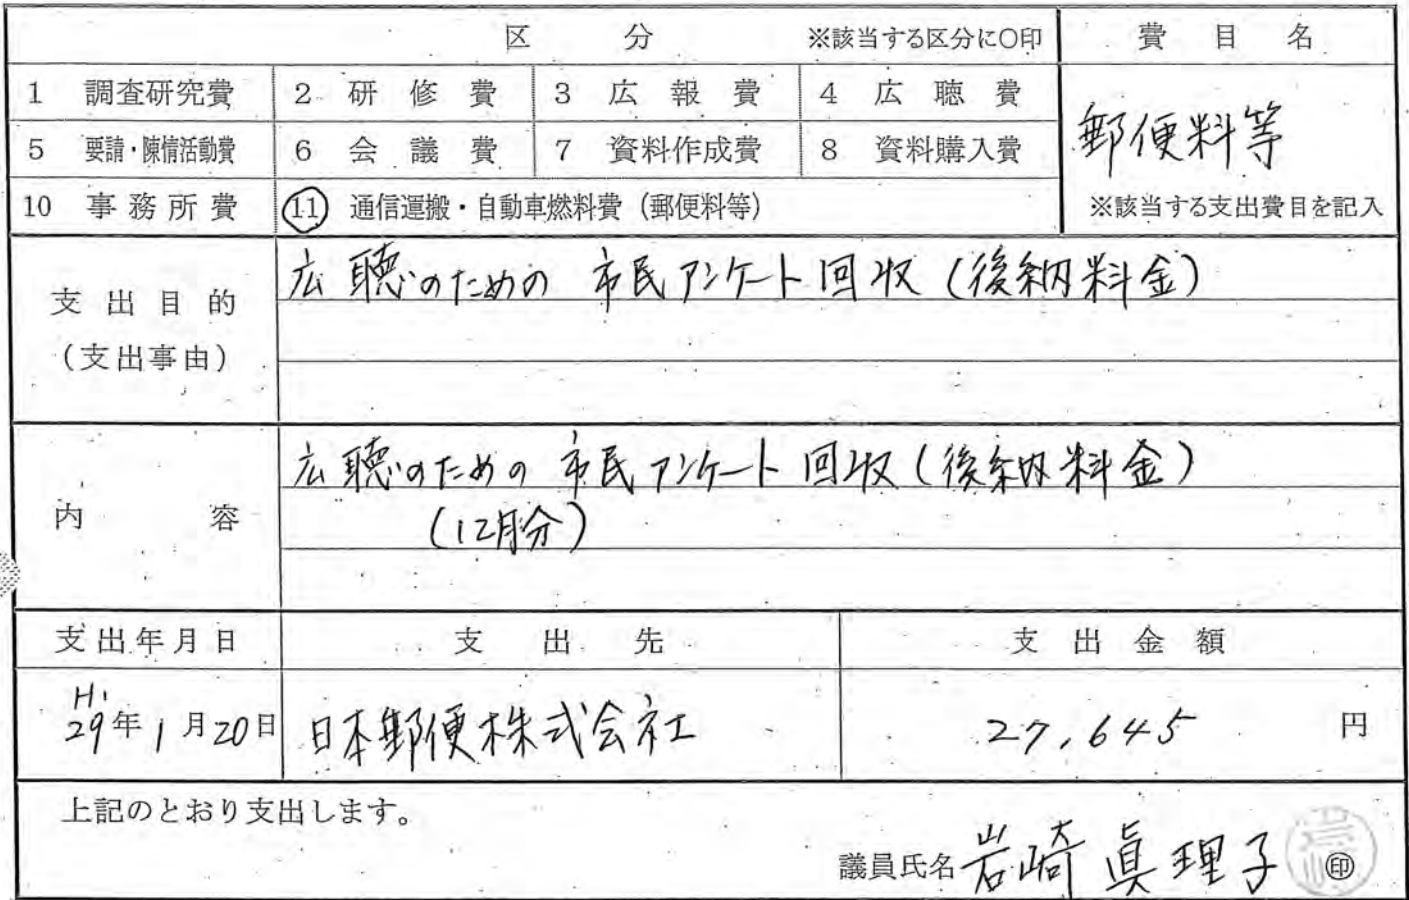 区 分 ※該当する区分に○印 費目名
1 調査研究費 2 研修費 3 広報費 4 広聴費
郵便料等
5 要請・陳情活動費 6 会議費 7 資料作成費 8 資料購入費
10 事務所費 11 通信運搬・自動車燃料費（郵便料等） ※該当する支出費目を記入
支出目的
（支出事由）
広聴のための 市民アンケート回収（後納料金）
内容
広聴のための 市民アンケート回収（後納料金）
（12月分）
支出年月日 支出先 支出金額
H.29年1月20日 日本郵便株式会社 27,645 円
上記のとおり支出します。
議員氏名 岩崎眞理子 印